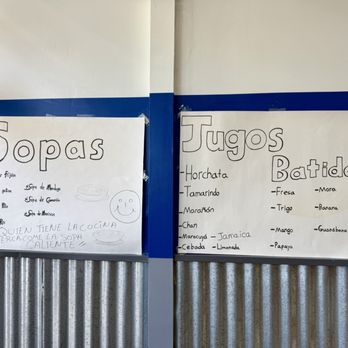 Sopas
frijol
-Sopa de Mondongo
-Sopa de Gallina
-Sopa de Mariscos
QUIEN TIENE LA COCINA
CERCA COME LA SOPA
CALIENTE
Jugos
Batido
-Horchata
-Tamarindo
-Marañón
-Chan
-Maracuyá
-Jamaica
-Cebada
-Limonada
-Fresa
-Mora
-Trigo
-Banana
-Mango
-Guanábana
-Papaya